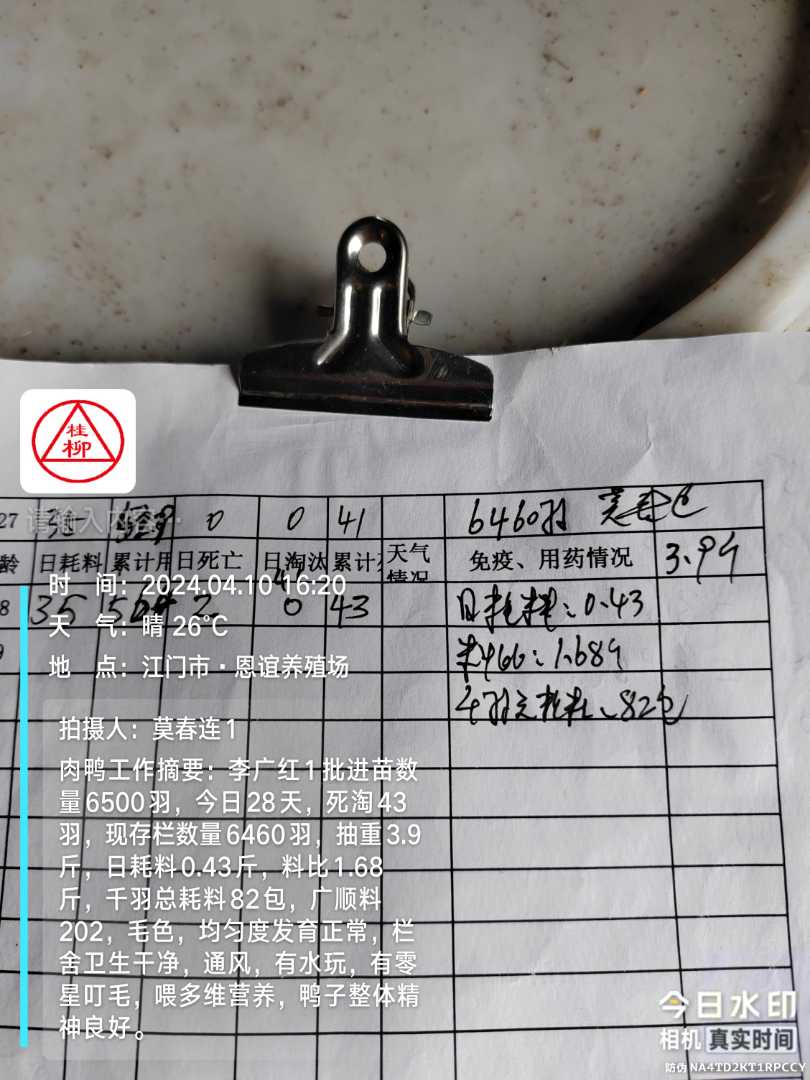 桂
柳
请输入内容
27 0 0 41 6460羽
龄 日耗料 累计用 日死亡 日淘汰 累计 天气情况 免疫、用药情况 3.9斤
8 35 2 0 43 日耗料:0.43
1.68斤
82包
时 间：2024.04.10 16:20
天 气：晴 26℃
地 点：江门市·恩谊养殖场
拍摄人：莫春连1
肉鸭工作摘要：李广红1批进苗数
量6500羽，今日28天，死淘43
羽，现存栏数量6460羽，抽重3.9
斤，日耗料0.43斤，料比1.68
斤，千羽总耗料82包，广顺料
202，毛色，均匀度发育正常，栏
舍卫生干净，通风，有水玩，有零
星叮毛，喂多维营养，鸭子整体精
神良好。
今日水印
相机 真实时间
防伪 NA4TD2KT1RPCCY